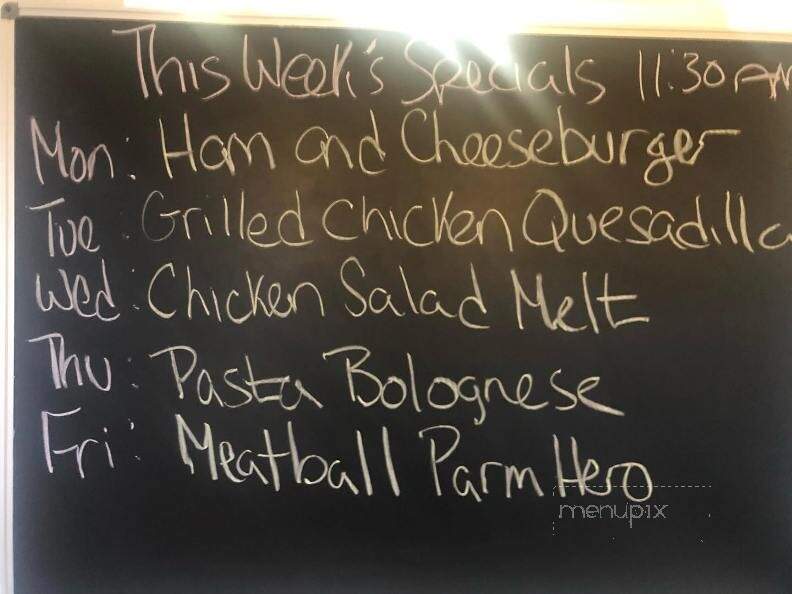 This Week's Specials 11:30 AM
Mon: Ham and Cheeseburger
Tue: Grilled Chicken Quesadilla
Wed: Chicken Salad Melt
Thu: Pasta Bolognese
Fri: Meatball Parm Hero
menupix